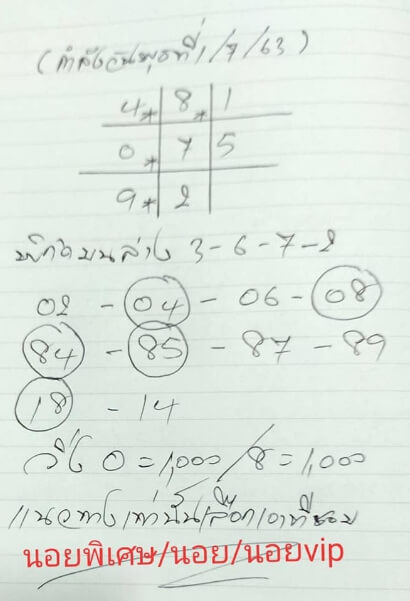 (กำลังวันพุธที่ 1/7/63)
4* 8* 1
0* 7 5
9* 2
พิกัดบนล่าง 3-6-7-2
02 - 04 - 06 - 08
84 - 85 - 87 - 89
18 - 14
วิ่ง 0 = 1,000 / 8 = 1,000
แนวทางเท่านั้นเลือกเอาที่ชอบ
นอยพิเศษ/นอย/นอยvip